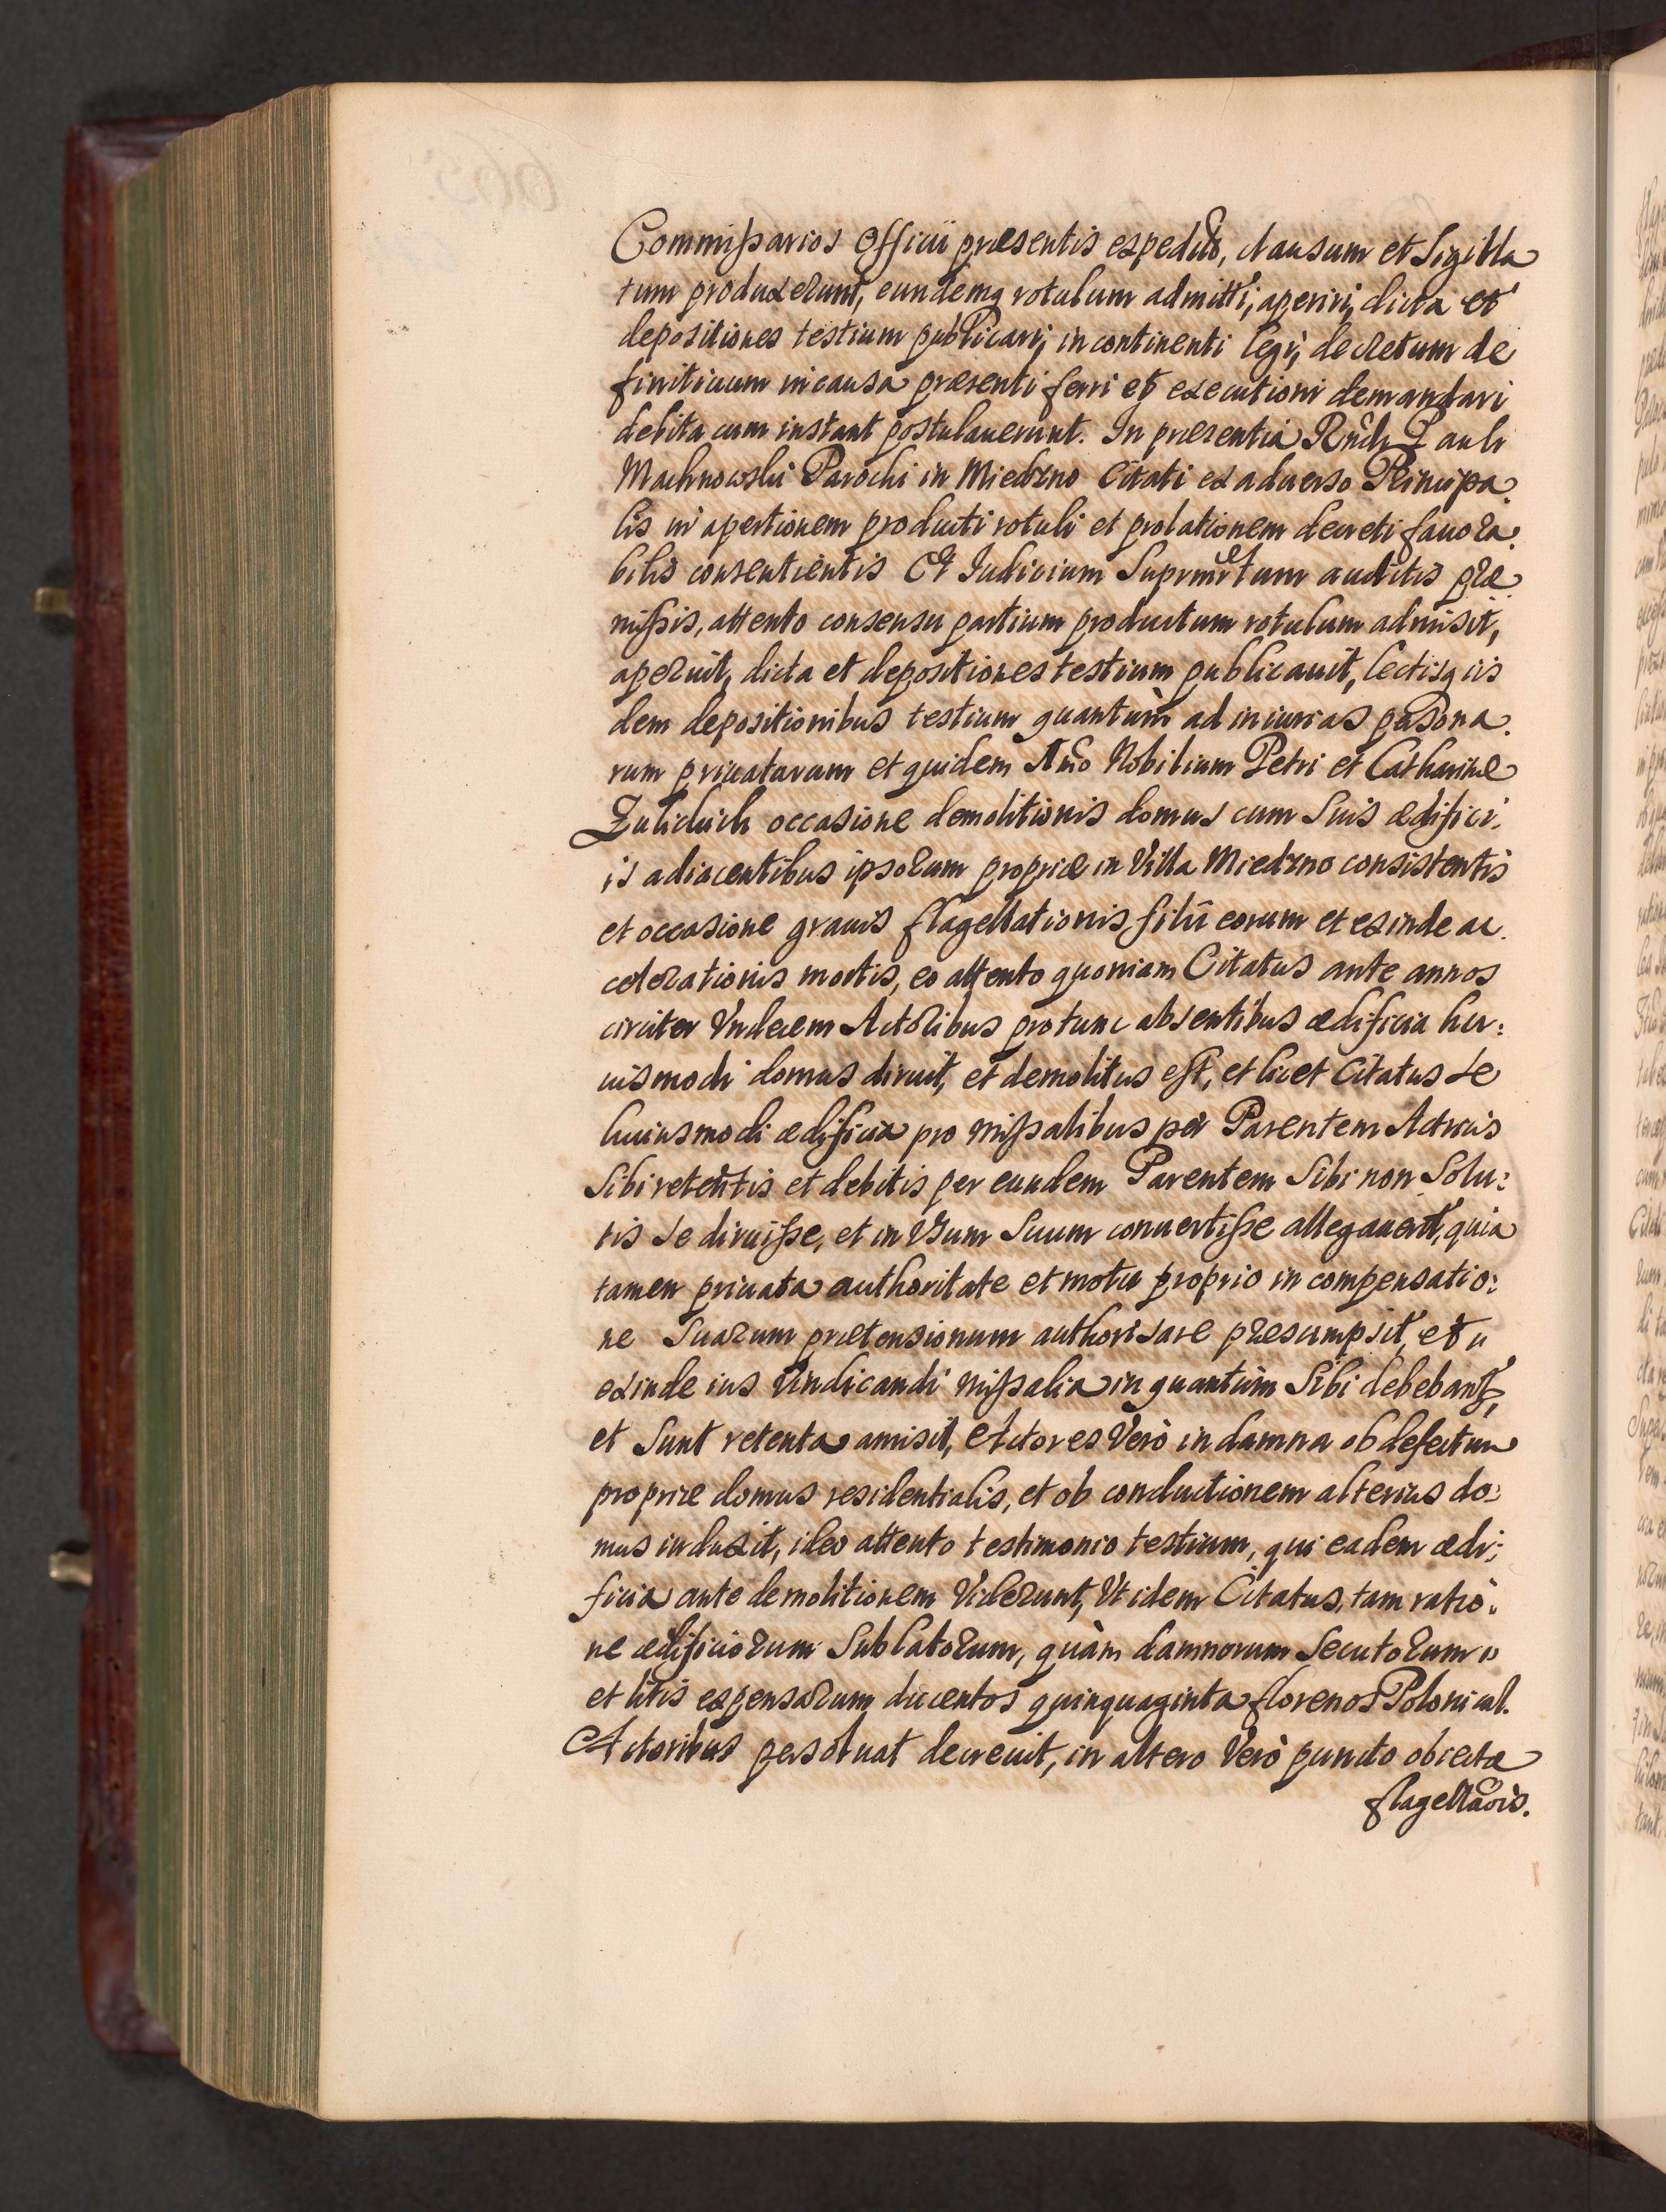 Commissarios Officii præsentis expedito, clausum et sigilla
tum produxerunt, eundemq rotulum admitti, aperiri, dicta et
depositiones testium publicari, in continenti legi, decretum de
finitiuum in causa præsenti ferri et executioni demandari
debita cum instant postulauerunt. In præsentia Rndi Pauli
Machnowski Parochi in Miedzno Citati ex aduerso Principa.
lis in apertionem producti rotuli et prolationem decreti fauora.
bilis consentientis Et Iudicium Suprmŭ tum auditis præ
missis, attento consensu partium productum rotulum admisit,
aperuit, dicta et depositiones testium publicauit, lectisq iis
dem depositionibus testium quantùm ad iniurias persona.
rum priuatarum et quidem Imo Nobilium Petri et Catharinæ
occasione demolitionis domus cum suis ædifici.
is adiacentibus ipsorum propriæ in Villa Miedzno consistentis
et occasione grauis flagellationis filii eorum et exinde ac.
celerationis mortis, eo attento quoniam Citatus ante annos
circiter Vndecem Actoribus pro tunc absentibus ædificia hu:
iusmodi domus diruit, et demolitus est, et licet Citatus se
huiusmodi ædificia pro missalibus per Parentem Actricis
sibi retentis et debitis per eundem Parentem sibi non solu:
tis se diruisse, et in Vsum suum conuertisse allegauerit, quia
tamen priuata authoritate et motu proprio in compensatio:
ne suarum prætensionum authorisare præsumpsit, et
exinde ius Vindicandi missalia in quantùm sibi debebant,
et sunt retenta amisit, Actores Verò in damna ob defectum
propriæ domus residentialis, et ob conductionem alterius do:
mus induxit, ideo attento testimonio testium, qui eadem ædi:
ficia ante demolitionem Viderunt, Vt idem Citatus, tam ratio:
ne ædificiorum sublatorum, quàm damnorum secutorum
et litis expensarum ducentos quinquaginta florenos Polonical.
Actoribus persoluat decreuit, in altero Verò puncto obiectæ
flagellaōis.